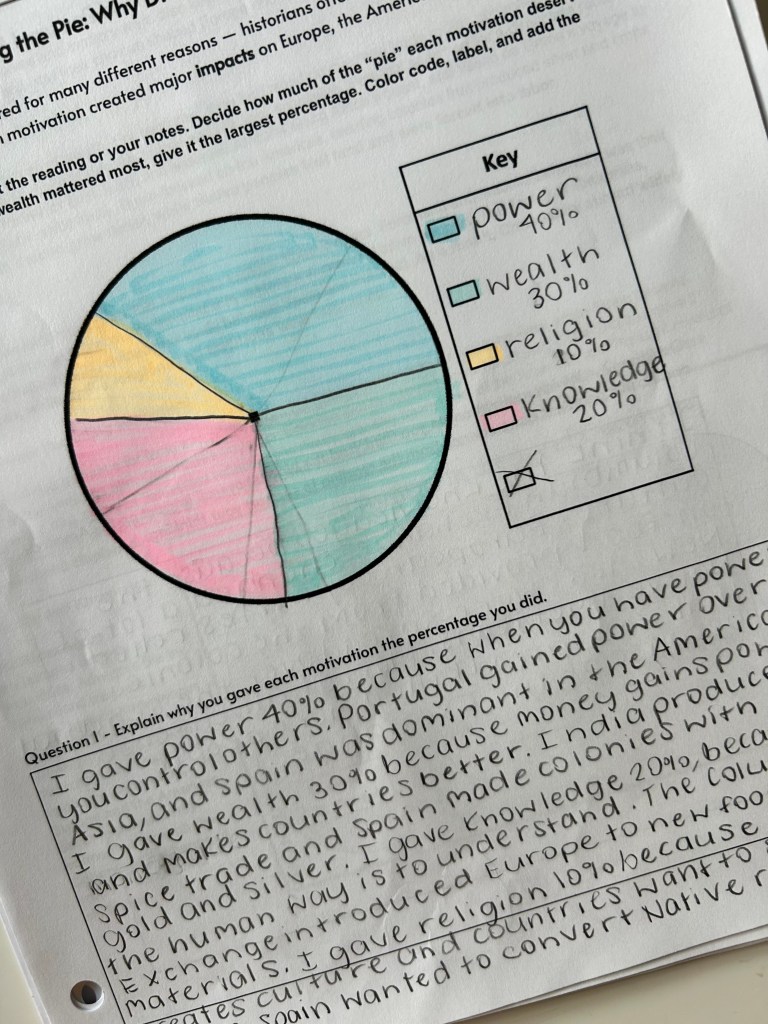 g the Pie: Why
red for many different reasons — historians
motivation created major impacts on Europe, the
the reading or your notes. Decide how much of the "pie" each motivation
wealth mattered most, give it the largest percentage. Color code, label, and add the
Key
power
40%
wealth
30%
religion
10%
Knowledge
20%
Question 1 - Explain why you gave each motivation the percentage you did.
I gave power 40% because when you have
you control others. Portugal gained power over
Asia, and Spain was dominant in the
I gave wealth 30% because money gains
and makes countries better. India
spice trade and Spain made colonies with
gold and silver. I gave Knowledge 20%,
the human way is to understand. The
Exchange introduced Europe to new
materials. I gave religion 10% because
culture and countries want to
Spain wanted to convert Native